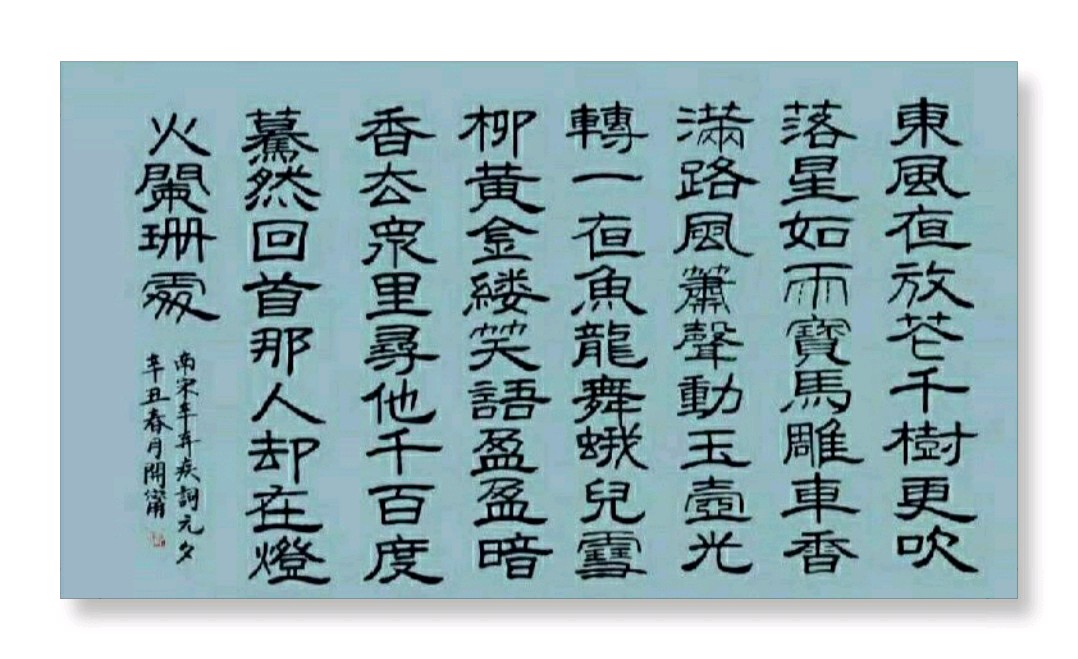 東風夜放花千樹更吹
落星如雨寶馬雕車香
滿路風簫聲動玉壺光
轉一夜魚龍舞蛾兒雪
柳黃金縷笑語盈盈暗
香去眾里尋他千百度
驀然回首那人却在燈
火闌珊處
南宋辛弃疾詞元夕
辛丑春月開